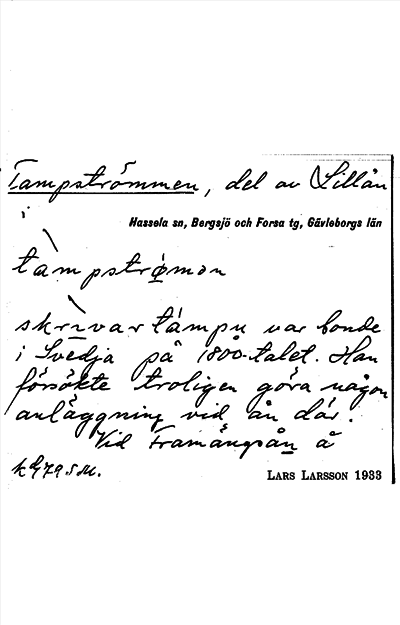 Tampströmmen, del av Lillån
i
Hassela sn, Bergsjö och Forsa tg, Gävleborgs län
tàmpstrømən
skrìvar támpu var bonde
i Svedja på 1800-talet. Han
försökte troligen göra någon
anläggning vid ån där.
Vid Framängsån å
LARS LARSSON 1933